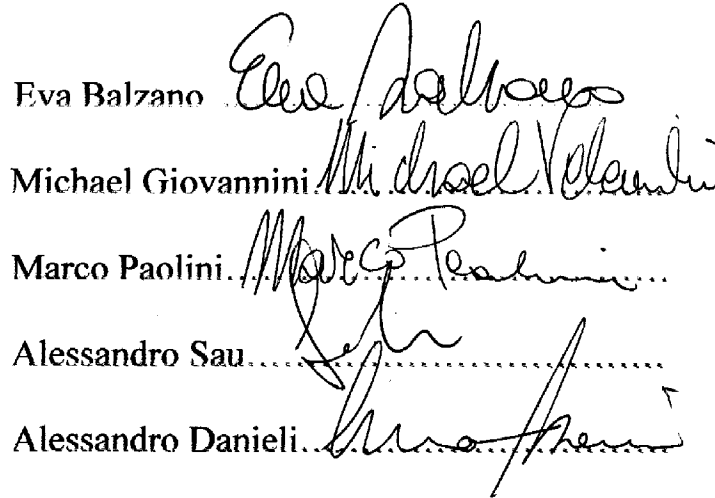 Eva Balzano Eva Balzano
Michael Giovannini Michael
Marco Paolini Marco Paolini
Alessandro Sau
Alessandro Danieli